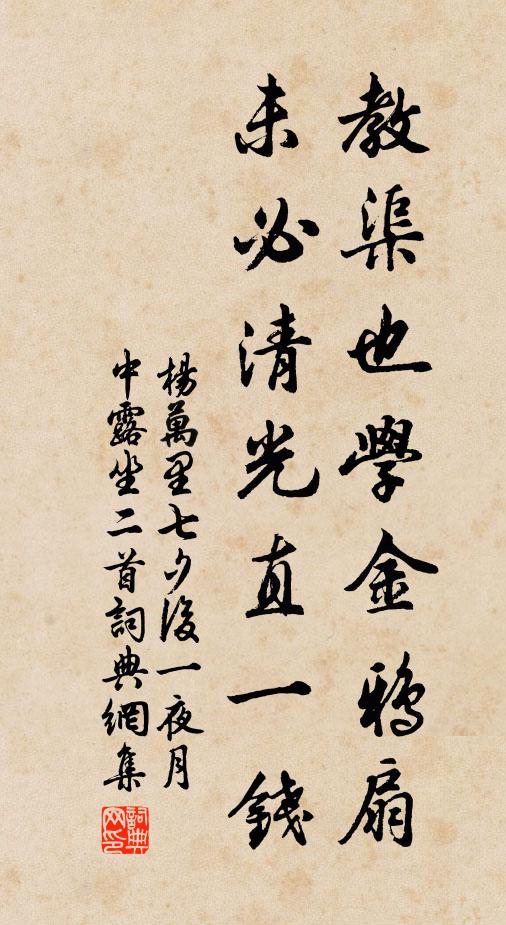 教渠也學金鴉扇
未必清光直一錢
楊萬里七夕後一夜月
中露坐二首詞典網集
詞典网印